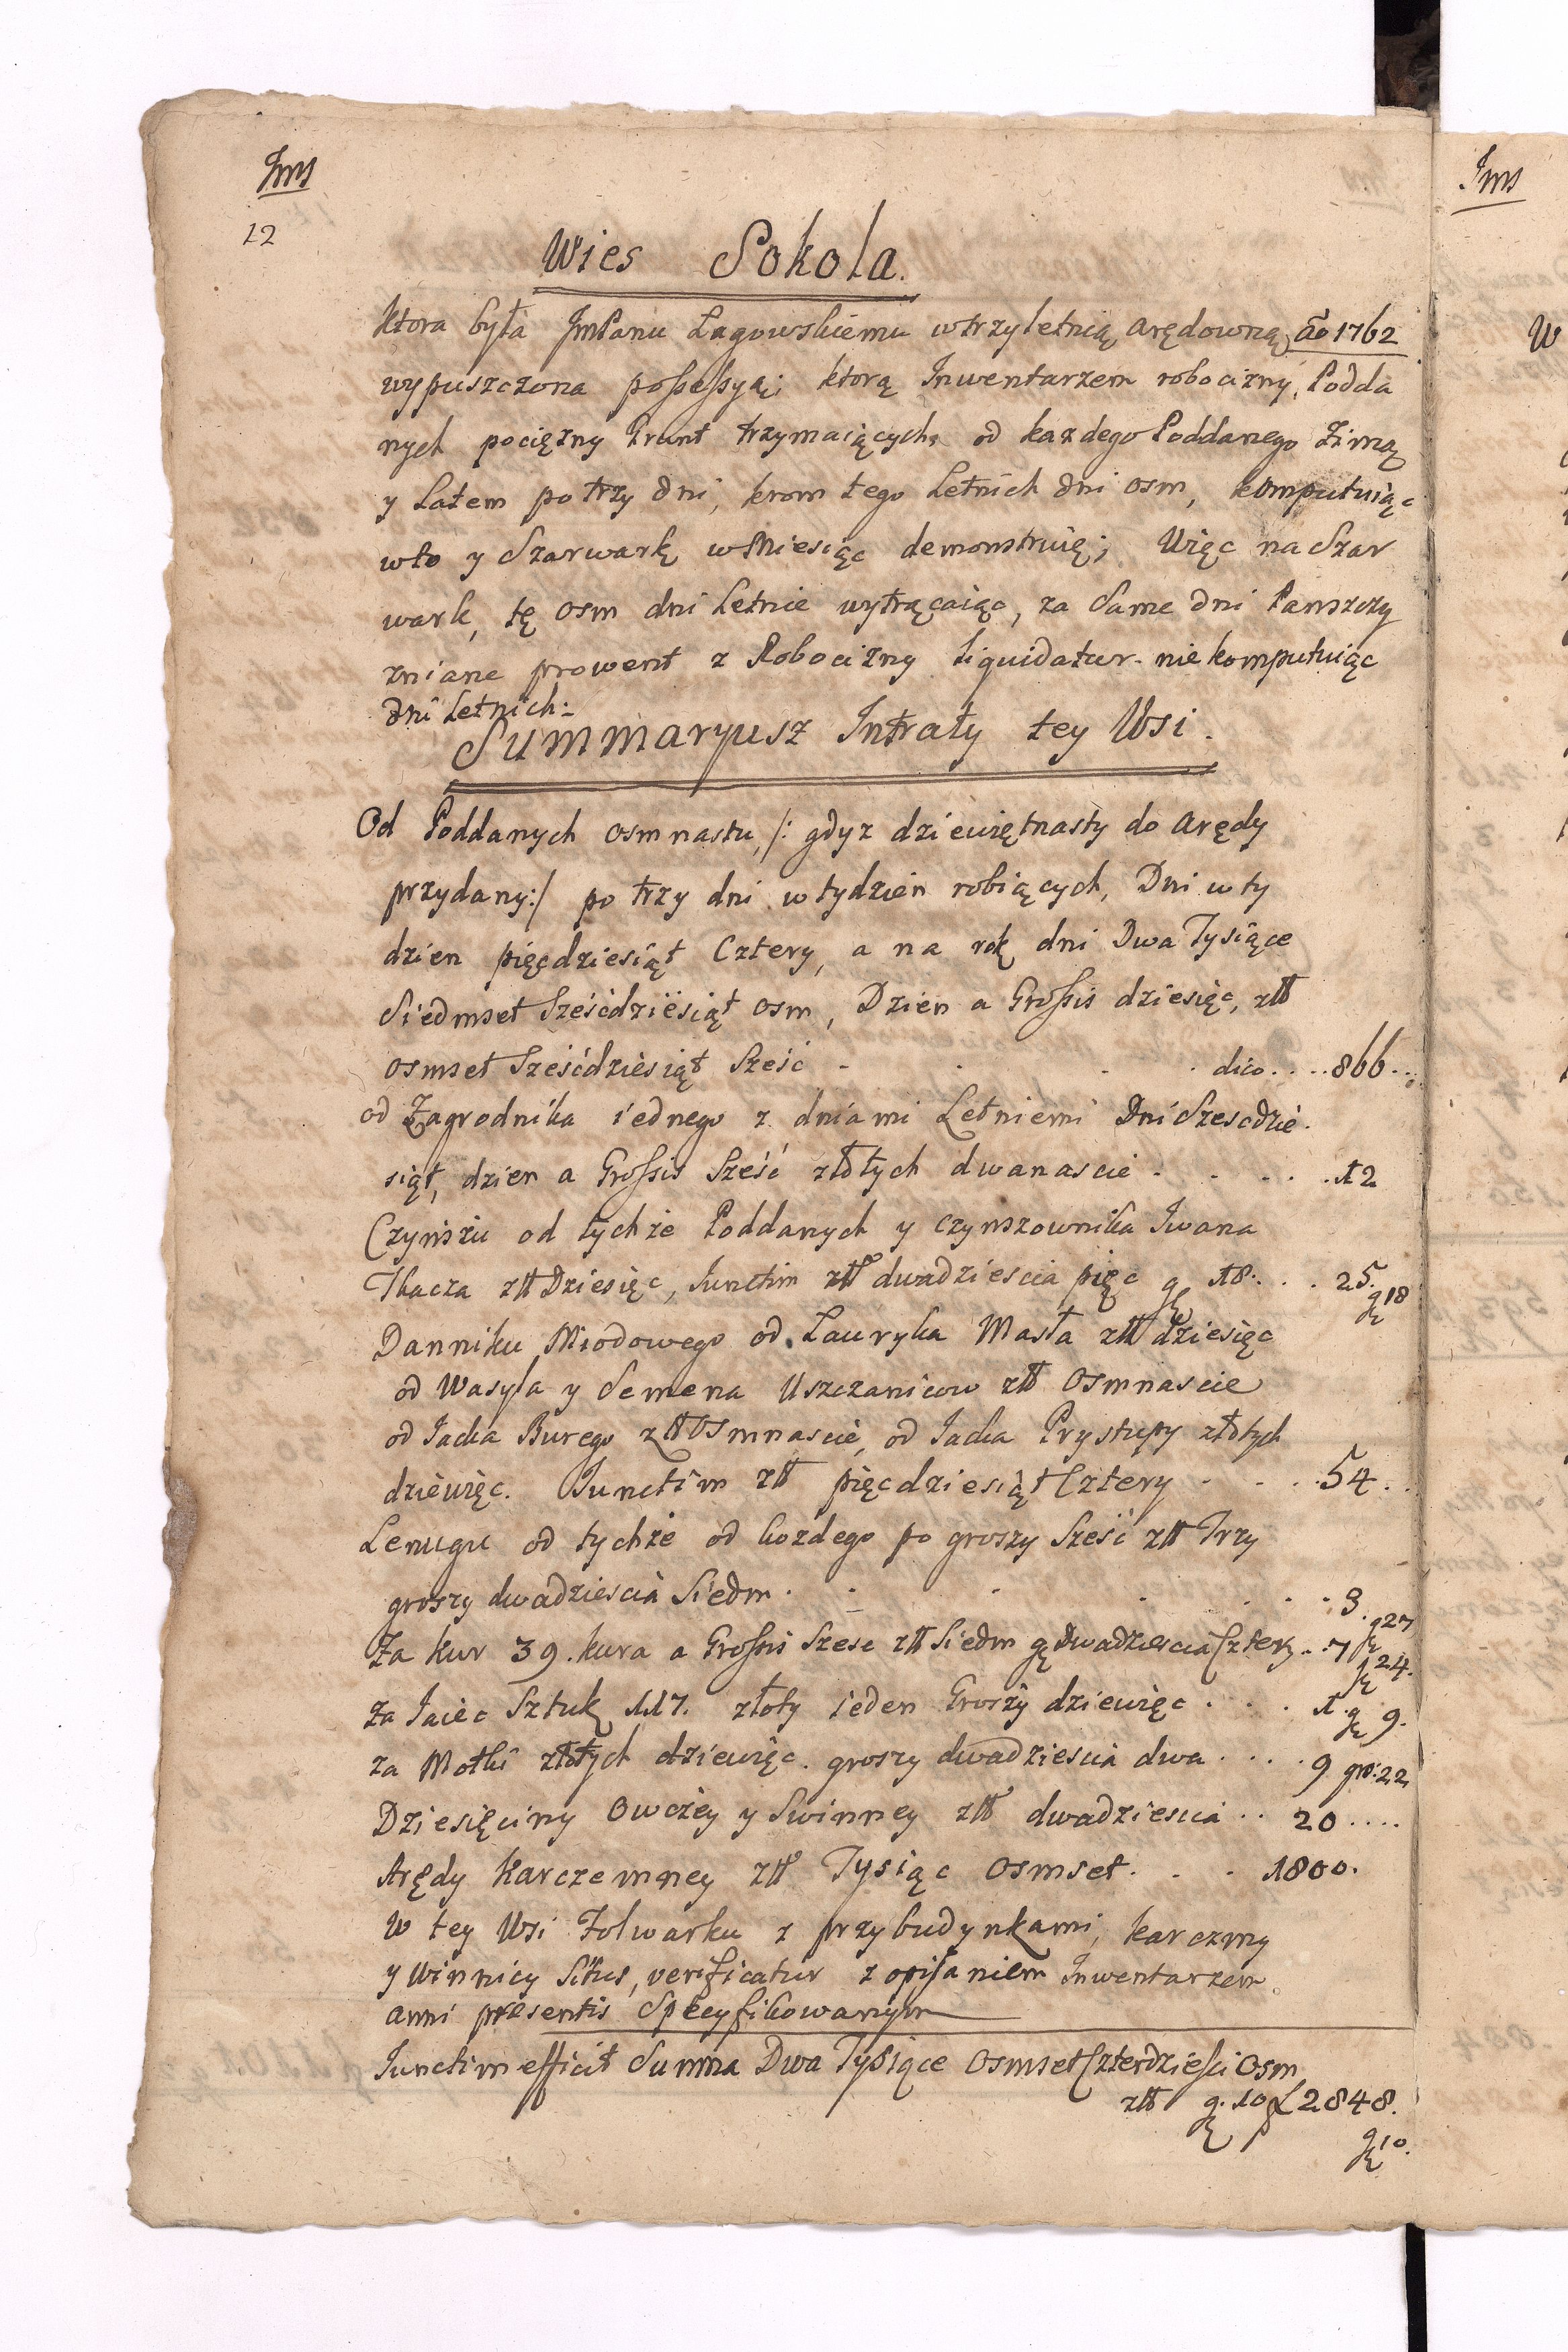 Jms
12
Wies Sokola.
ktora była JmPanu Łagowskiemu w trzyletnią arędowną ao 1762
wypuszczona possessyą; ktorą Inwentarzem robocizny, Podda
nych pociężny Grunt trzymaiących, od kazdego Poddanego Zimą
y Latem po trzy dni, krom tego Letnich dni osm, komputuiąc
w to y Szarwarkę w Miesiąc demonstruię; Więc na Szar
wark, tę osm dni Letnie wytrącaiąc, za Same dni Panszczy
zniane prowent z Robocizny liquidatur. nie komputuiąc
dni Letnich:
Summaryusz Intraty tey Wsi.
Od Poddanych osmnastu, /: gdyz dziewiętnasty do arędy
przydany:/ po trzy dni w tydzien robiących, Dni w ty
dzien pięcdziesiąt Cztery, a na rok dni Dwa Tysiące
Siedmset Sześćdziesiąt osm, Dzien a Grossis dziesięc, złł
osmset Sześćdziesiąt Sześć . . . dico . . . 866 . .
od Zagrodnika iednego z dniami Letniemi Dni Szescdzie.
siąt, dzien a Grossis Sześć złotych dwanascie . . . . 12
Czynszu od tychże Poddanych y czynszownika Iwana
Tkacza złł Dziesięc, Iunctim złł dwadziescia pięc g 18 . . . 25. g 18
Danniku Miodowego od Lauryka Masła złł dziesięc
od Wasyla y Semena Uszczanicow złł Osmnascie
od Iacka Burego złł Osmnascie, od Iacka Prystupy złotych
dziewięc. Iunctim złł pięcdziesiąt Cztery . . . 54 . .
Lenugu od tychże od kozdego po groszy Sześć złł Trzy
groszy dwadziescia Siedm . . . . . . 3. g 27
Za kur 39. kura a Grossis Szesc złł Siedm g dwadziescia Cztery . . 7 g 24.
za Iaiec Sztuk 117. złoty ieden Groszy dziewięc . . . 1. g 9.
za Motki złotych dziewięc. groszy dwadziescia dwa . . . . 9 gro: 22
Dziesięciny Owczey y Swinney złł dwadziescia . . 20 . . . .
Arędy Karczemney złł Tysiąc Osmset . . . 1800.
W tey Wsi Folwarku z przybudynkami, karczmy
y Winnicy Situs, verificatur z opisaniem Inwentarzem
anni presentis Specyfikowanym
Iunctim efficit Summa Dwa Tysiące Osmset Czterdziesci Osm
złł g. 10 2848.
g 10.
Jms
W